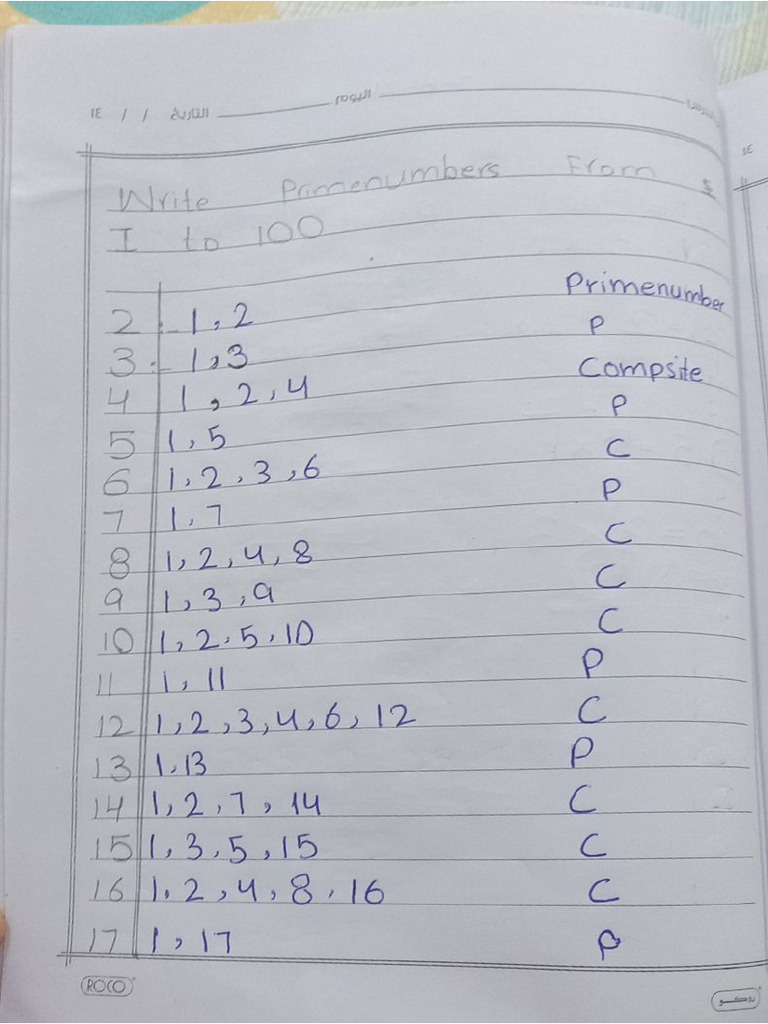 ١٤ / / التاريخ اليوم
Write Primenumbers From
I to 100
Primenumber
2 1, 2 P
3 1, 3 Compsite
4 1, 2, 4 P
5 1, 5 C
6 1, 2, 3, 6 P
7 1, 7 C
8 1, 2, 4, 8 C
9 1, 3, 9 C
10 1, 2, 5, 10 P
11 1, 11 C
12 1, 2, 3, 4, 6, 12 P
13 1, 13 C
14 1, 2, 7, 14 C
15 1, 3, 5, 15 C
16 1, 2, 4, 8, 16 P
17 1, 17
ROCO روكو
١٤